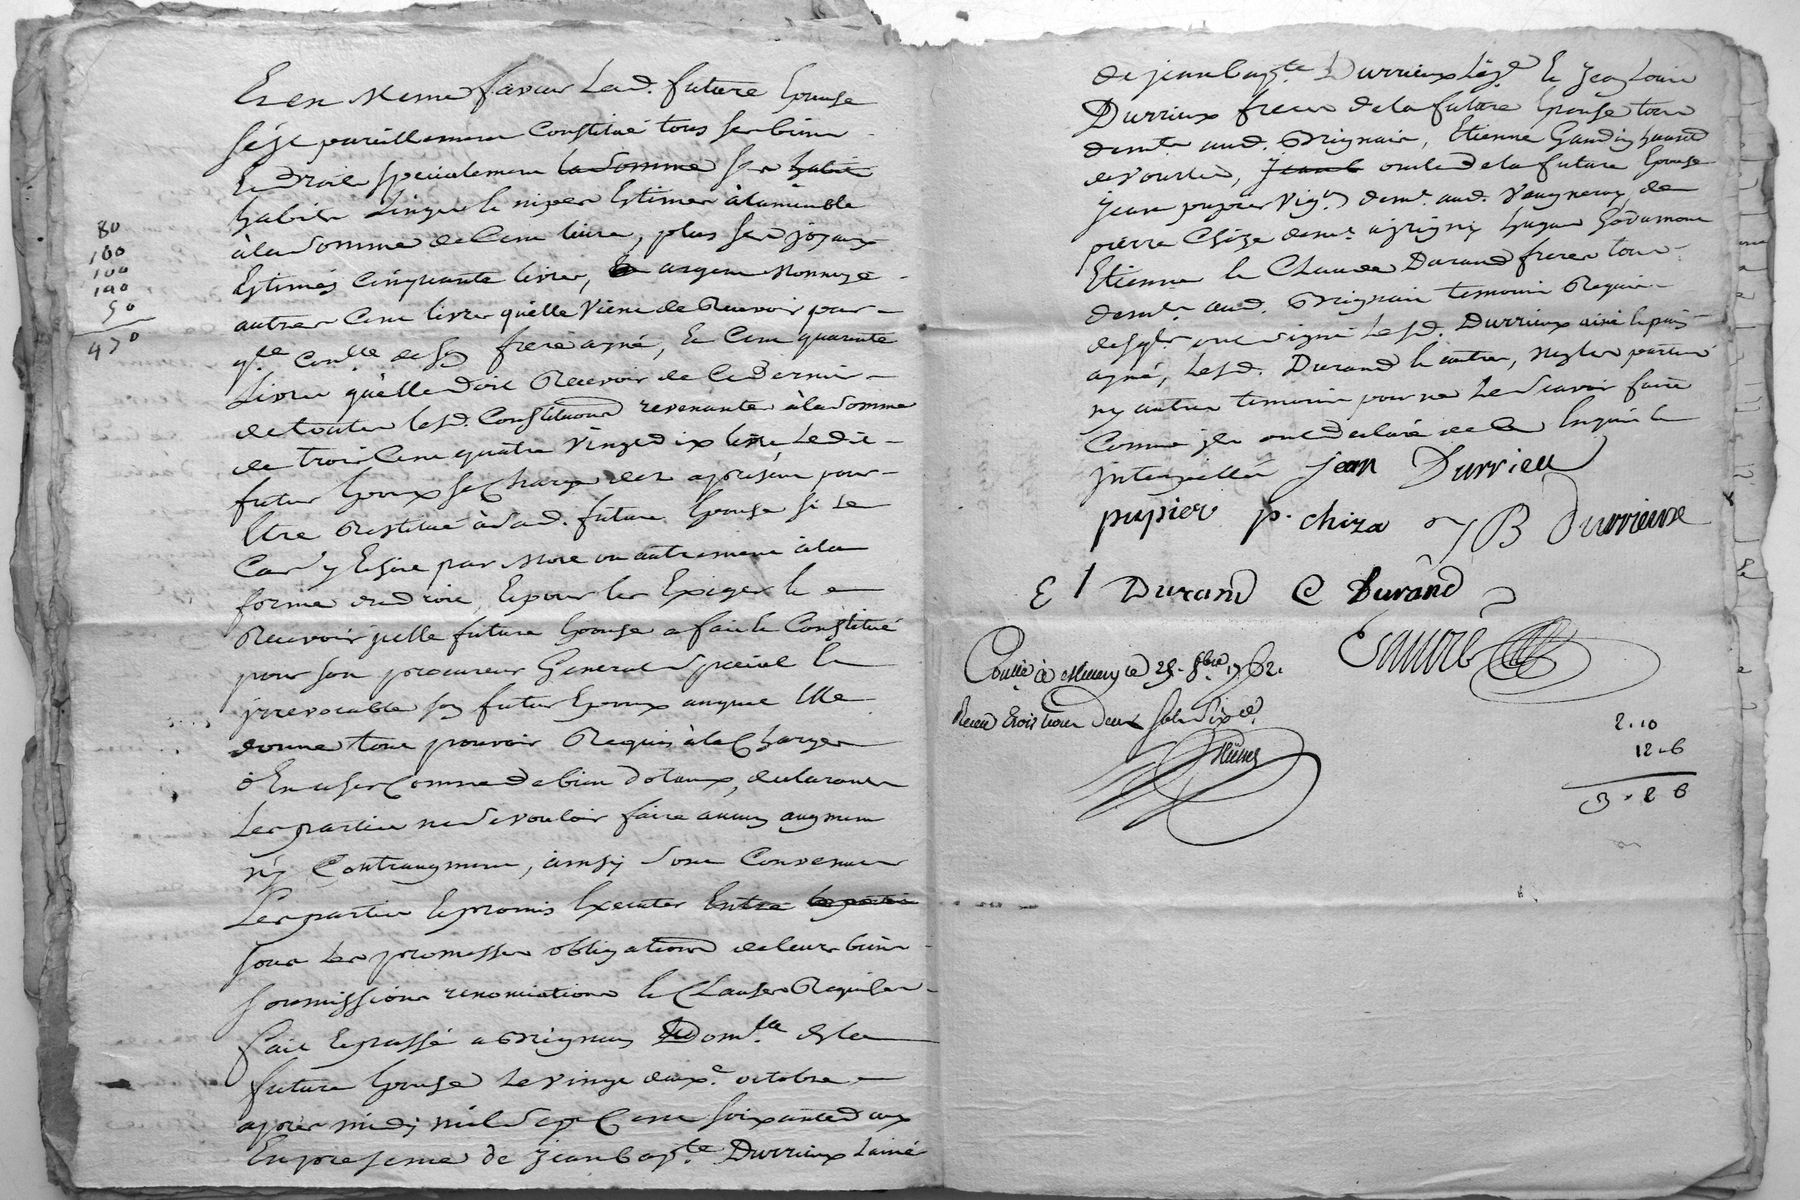 Et en Meme faveur Lad. future Epouse
s'est pareillement Constitué tous ses biens
Et Droits specialement la somme ses habits
habits Linges et nipes Estimés à l'amiable
à la somme de Cent livres, plus ses joyaux
Estimés cinquante livres, En argent Monnoyé
autres Cent livres qu'elle vient de Recevoir par
de son frere ayné, Et Cent quarante
Livres qu'elle doit Recevoir de Ce dernier
de toutes lesd. Constitutions revenantes à la somme
de trois Cent quatre vingt dix livres Ledit
futur Epoux se Charge des à présent pour
Etre Restitué à Lad. future Epouse si Le
Cas y Echoit par Mort ou autrement à la
forme du droit, Et pour les Exiger Et
Recevoir icelle future Epouse a fait Et Constitué
pour son procureur General special Et
jrrevocable son futur Epoux auquel Elle
donne tout pouvoir Requis à la Charge
d'En user Comme de bien dotaux, declarants
Les parties ne vouloir faire aucun augment
ny Contraugment, ainsy sont Convenus
Les parties Et promis Executer Entre les parties
sous Les promesses obligations de leurs biens
soumissions renonciations Et Clauses Requises
fait Et passé a Brignais Dom.lle de la
future Epouse Le vingt deux.e octobre
après midy mil sept Cent soixante deux
En presence de jean bap.te Durrieux Lainé
80
100
100
140
50
470
de jean bap.te Durrieux Lég.r Et jean Louis
Durrieux frere de la future Epouse tous
dem.ts aud. Brignais, Etienne Gaudin
de Vourles, oncle de la future Epouse
jean pupier Vig.n dem.t aud. Vaugneray, de
pierre Chize dem.t a grigny
Etienne Et Claude Durand freres tous
dem.ts aud. Brignais temoins Requis
desq.ls ont signé Lesd. Durrieux ainé Et puis
ayné, Lesd. Durand Et autres, non les parties
ny autres temoins pour ne Le scavoir faire
Comme jls ont declaré de Ce Enquis Et
interpellés jean Durrieu
pupier p. chiza J B Durrieuxe
E t Durand C Durand
le 25. 8bre 1762.
Receu trois livres deux sols six d.
2.10
12.6
3.2 6